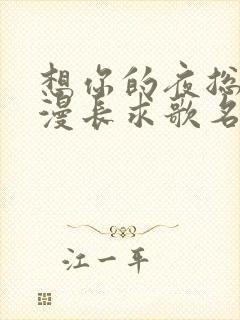 想你的夜总
漫长求歌名
江一平